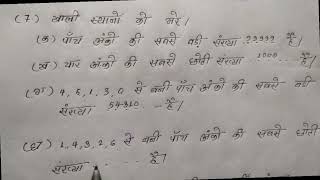 (7) खाली स्थानों को भरे।
(क) पाँच अंको की सबसे बड़ी संख्या .99999 है।
(ख) चार अंको की सबसे छोटी संख्या 1000... है।
(ग) 4, 5, 1, 3, 0 से बनी पाँच अंको की सबसे बड़ी
संख्या 54310. - है।
(घ) 1, 4, 3, 2, 6 से बनी पाँच अंको की सबसे छोटी
संख्या ........ है।